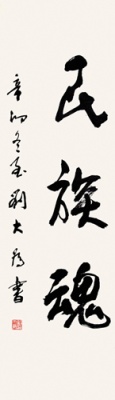 民族魂
辛卯冬至刘大为书